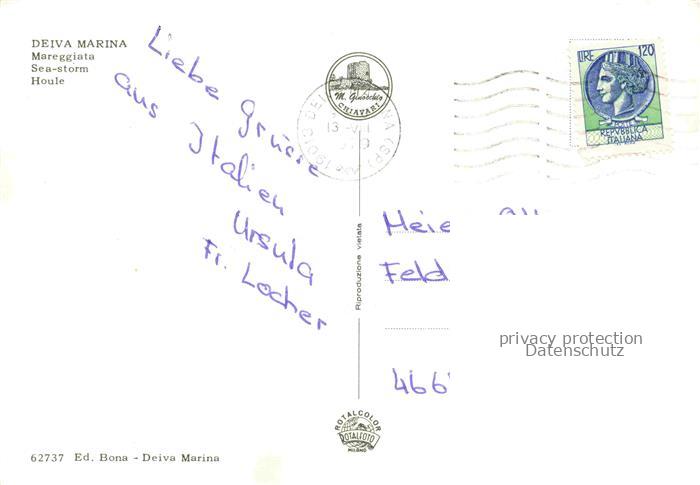 DEIVA MARINA
Mareggiata
Sea-storm
Houle
Liebe Grüsse
aus Italien
Ursula
Fr. Locher
M. Ginocchio
CHIAVARI
LIRE 120
REPVBBLICA
ITALIANA
Riproduzione vietata
Meie
Feld
466
privacy protection
Datenschutz
ROTALCOLOR
ROTALFOTO
MILANO
62737 Ed. Bona - Deiva Marina